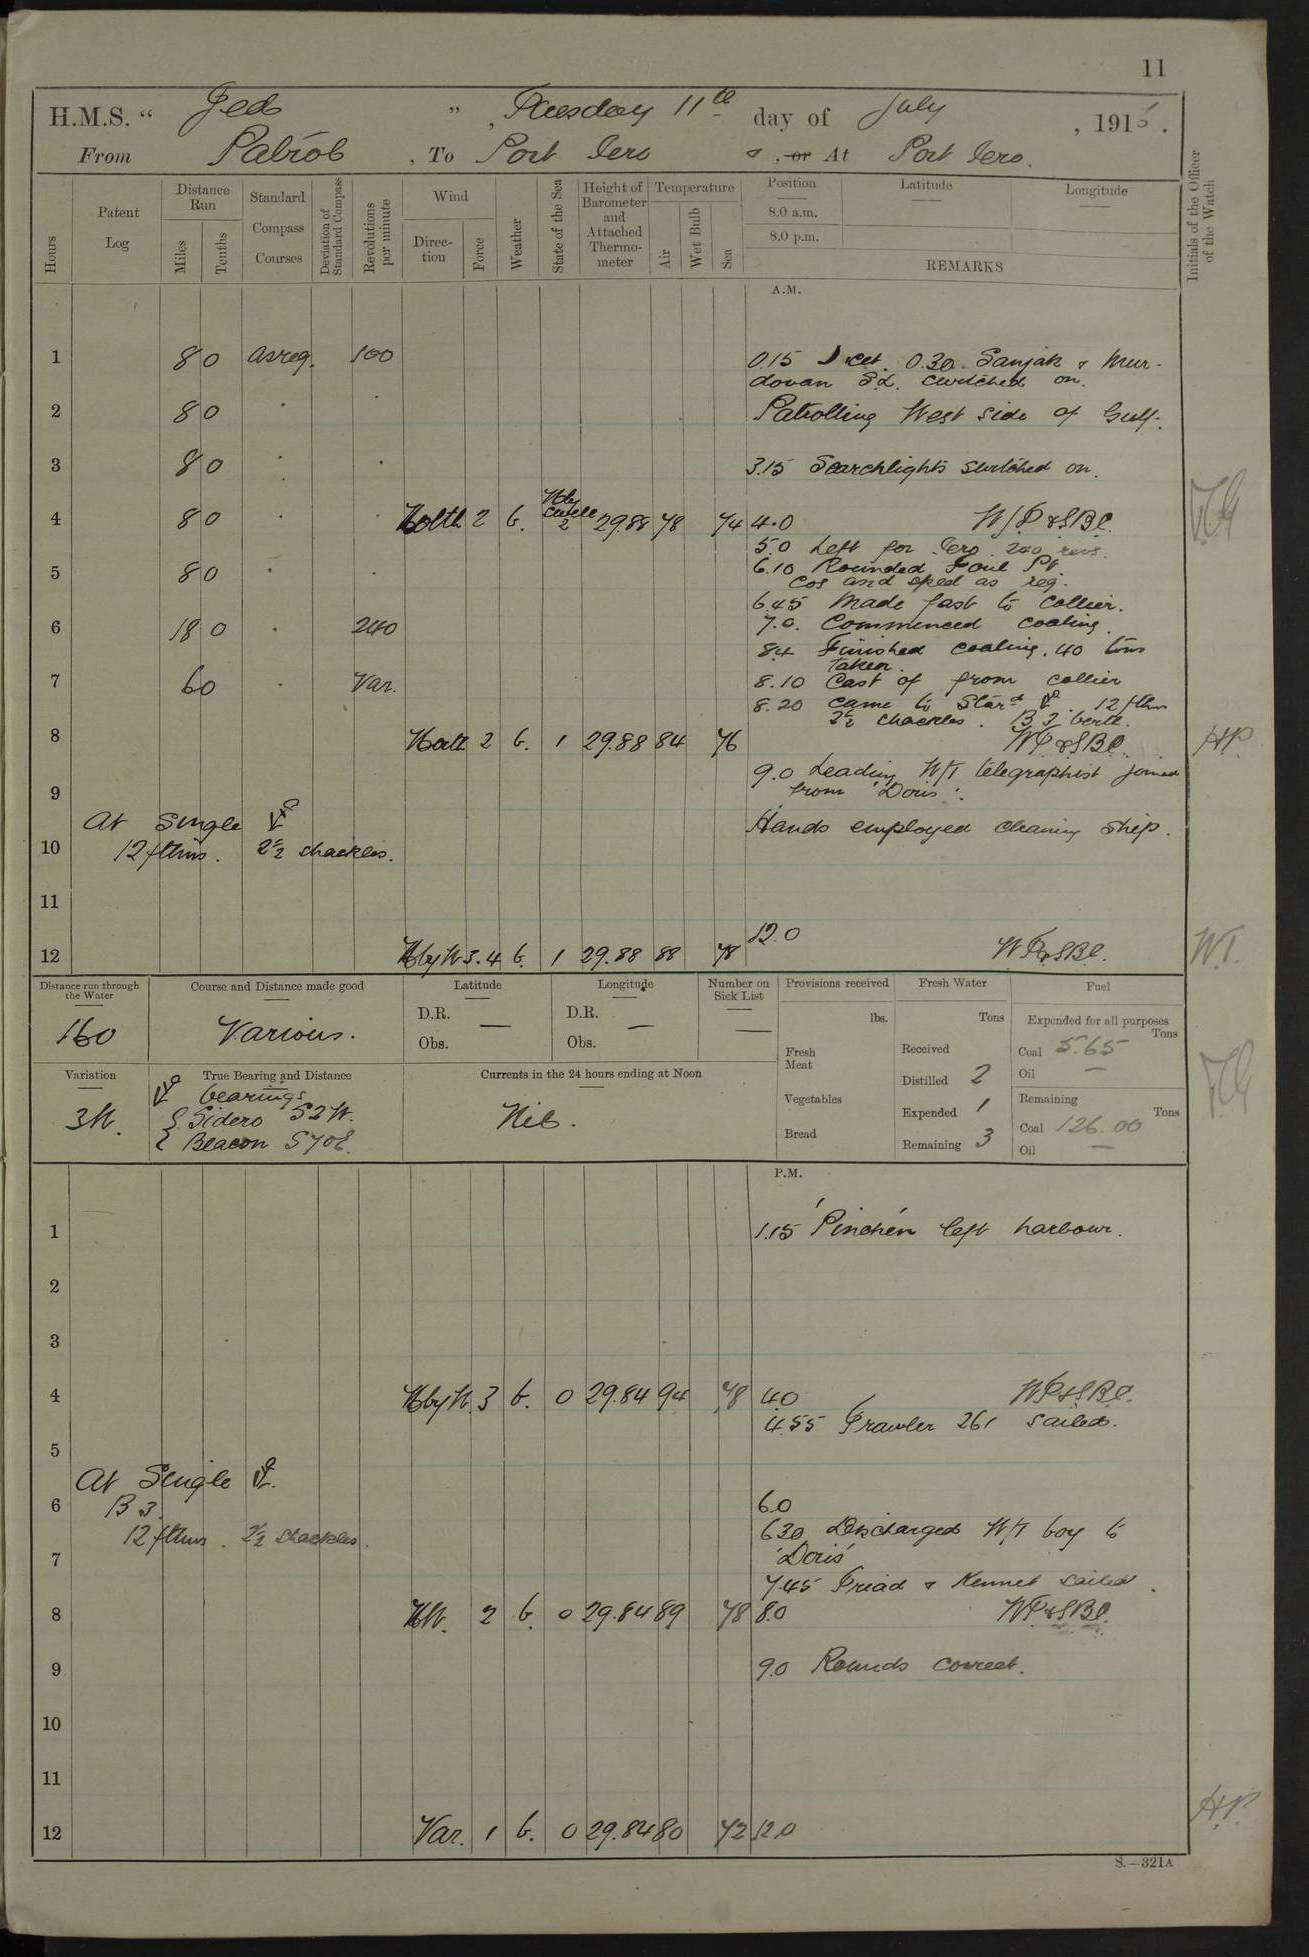 11
H.M.S. “ Jed ” , Tuesday 11th day of July , 1916 .
From Patrol , To Port Iero & , or At Port Iero.
Hours
Patent Log
Distance Run
Miles
Tenths
Standard Compass Courses
Deviation of Standard Compass
Revolutions per minute
Wind
Direction
Force
Weather
State of the Sea
Height of Barometer and Attached Thermometer
Temperature
Air
Wet Bulb
Sea
Position
8.0 a.m.
8.0 p.m.
Latitude
Longitude
REMARKS
Initials of the Officer of the Watch
A.M.
1 8 0 as req. 100 0.15 set. 0.30 Sanjak & Mur-
dovan S.L. switched on.
2 8 0 Patrolling West side of Gulf.
3 8 0 3.15 Searchlights switched on.
4 8 0 North 2 b. 2 29.88 78 74 4.0
5.0 Left for Iero. 240 revs.
5 8 0 6.10 Rounded Foul Pt.
Cos and speed as req.
6.45 Made fast to collier.
6 18 0 240 7.0. Commenced coaling.
8.4 Finished coaling. 40 tons
taken.
7 6 0 Var. 8.10 Cast of from collier
8.20 came to Starbd ⚓. 12 fthm
2½ shackles. B 3 berth.
8 North 2 b. 1 29.88 84 76 WP&SBC. HP.
9.0 Leading W/T telegraphist joined
9 from 'Doris'.
At Single ⚓ Hands employed cleaning ship.
10 12 fthms. 2½ shackles.
11
12.0
12 NbyW 3.4 b. 1 29.88 88 78 WP&SBC. W.T.
Distance run through the Water
160
Course and Distance made good
Various.
Latitude
D.R. —
Obs.
Longitude
D.R. —
Obs.
Number on Sick List
—
Provisions received
lbs.
Fresh Meat
Vegetables
Bread
Fresh Water
Tons
Received
Distilled 2
Expended 1
Remaining 3
Fuel
Expended for all purposes
Tons
Coal 5.65
Oil —
Remaining
Tons
Coal 126.00
Oil —
Variation
3W.
True Bearing and Distance
⚓ bearings
Sidero S2W.
Beacon S70E.
Currents in the 24 hours ending at Noon
Nil.
P.M.
1 1.15 'Pinchin' left harbour.
2
3
4 NbyW. 3 b. 0 29.84 94 78 4.0 WP&SBC.
4.55 Trawler 261 sailed.
5
At Single ⚓.
6 B 3. 6.0
12 fthms. 2½ shackles. 6.30 Discharged W/T boy to
7 'Doris'
7.45 Triad & Kennet sailed.
8 NW. 2 b. 0 29.84 89 78 8.0 WP&SBC.
9 9.0 Rounds correct.
10
11
12 Var. 1 b. 0 29.84 80 72 12.0 H.P.
S.—321A